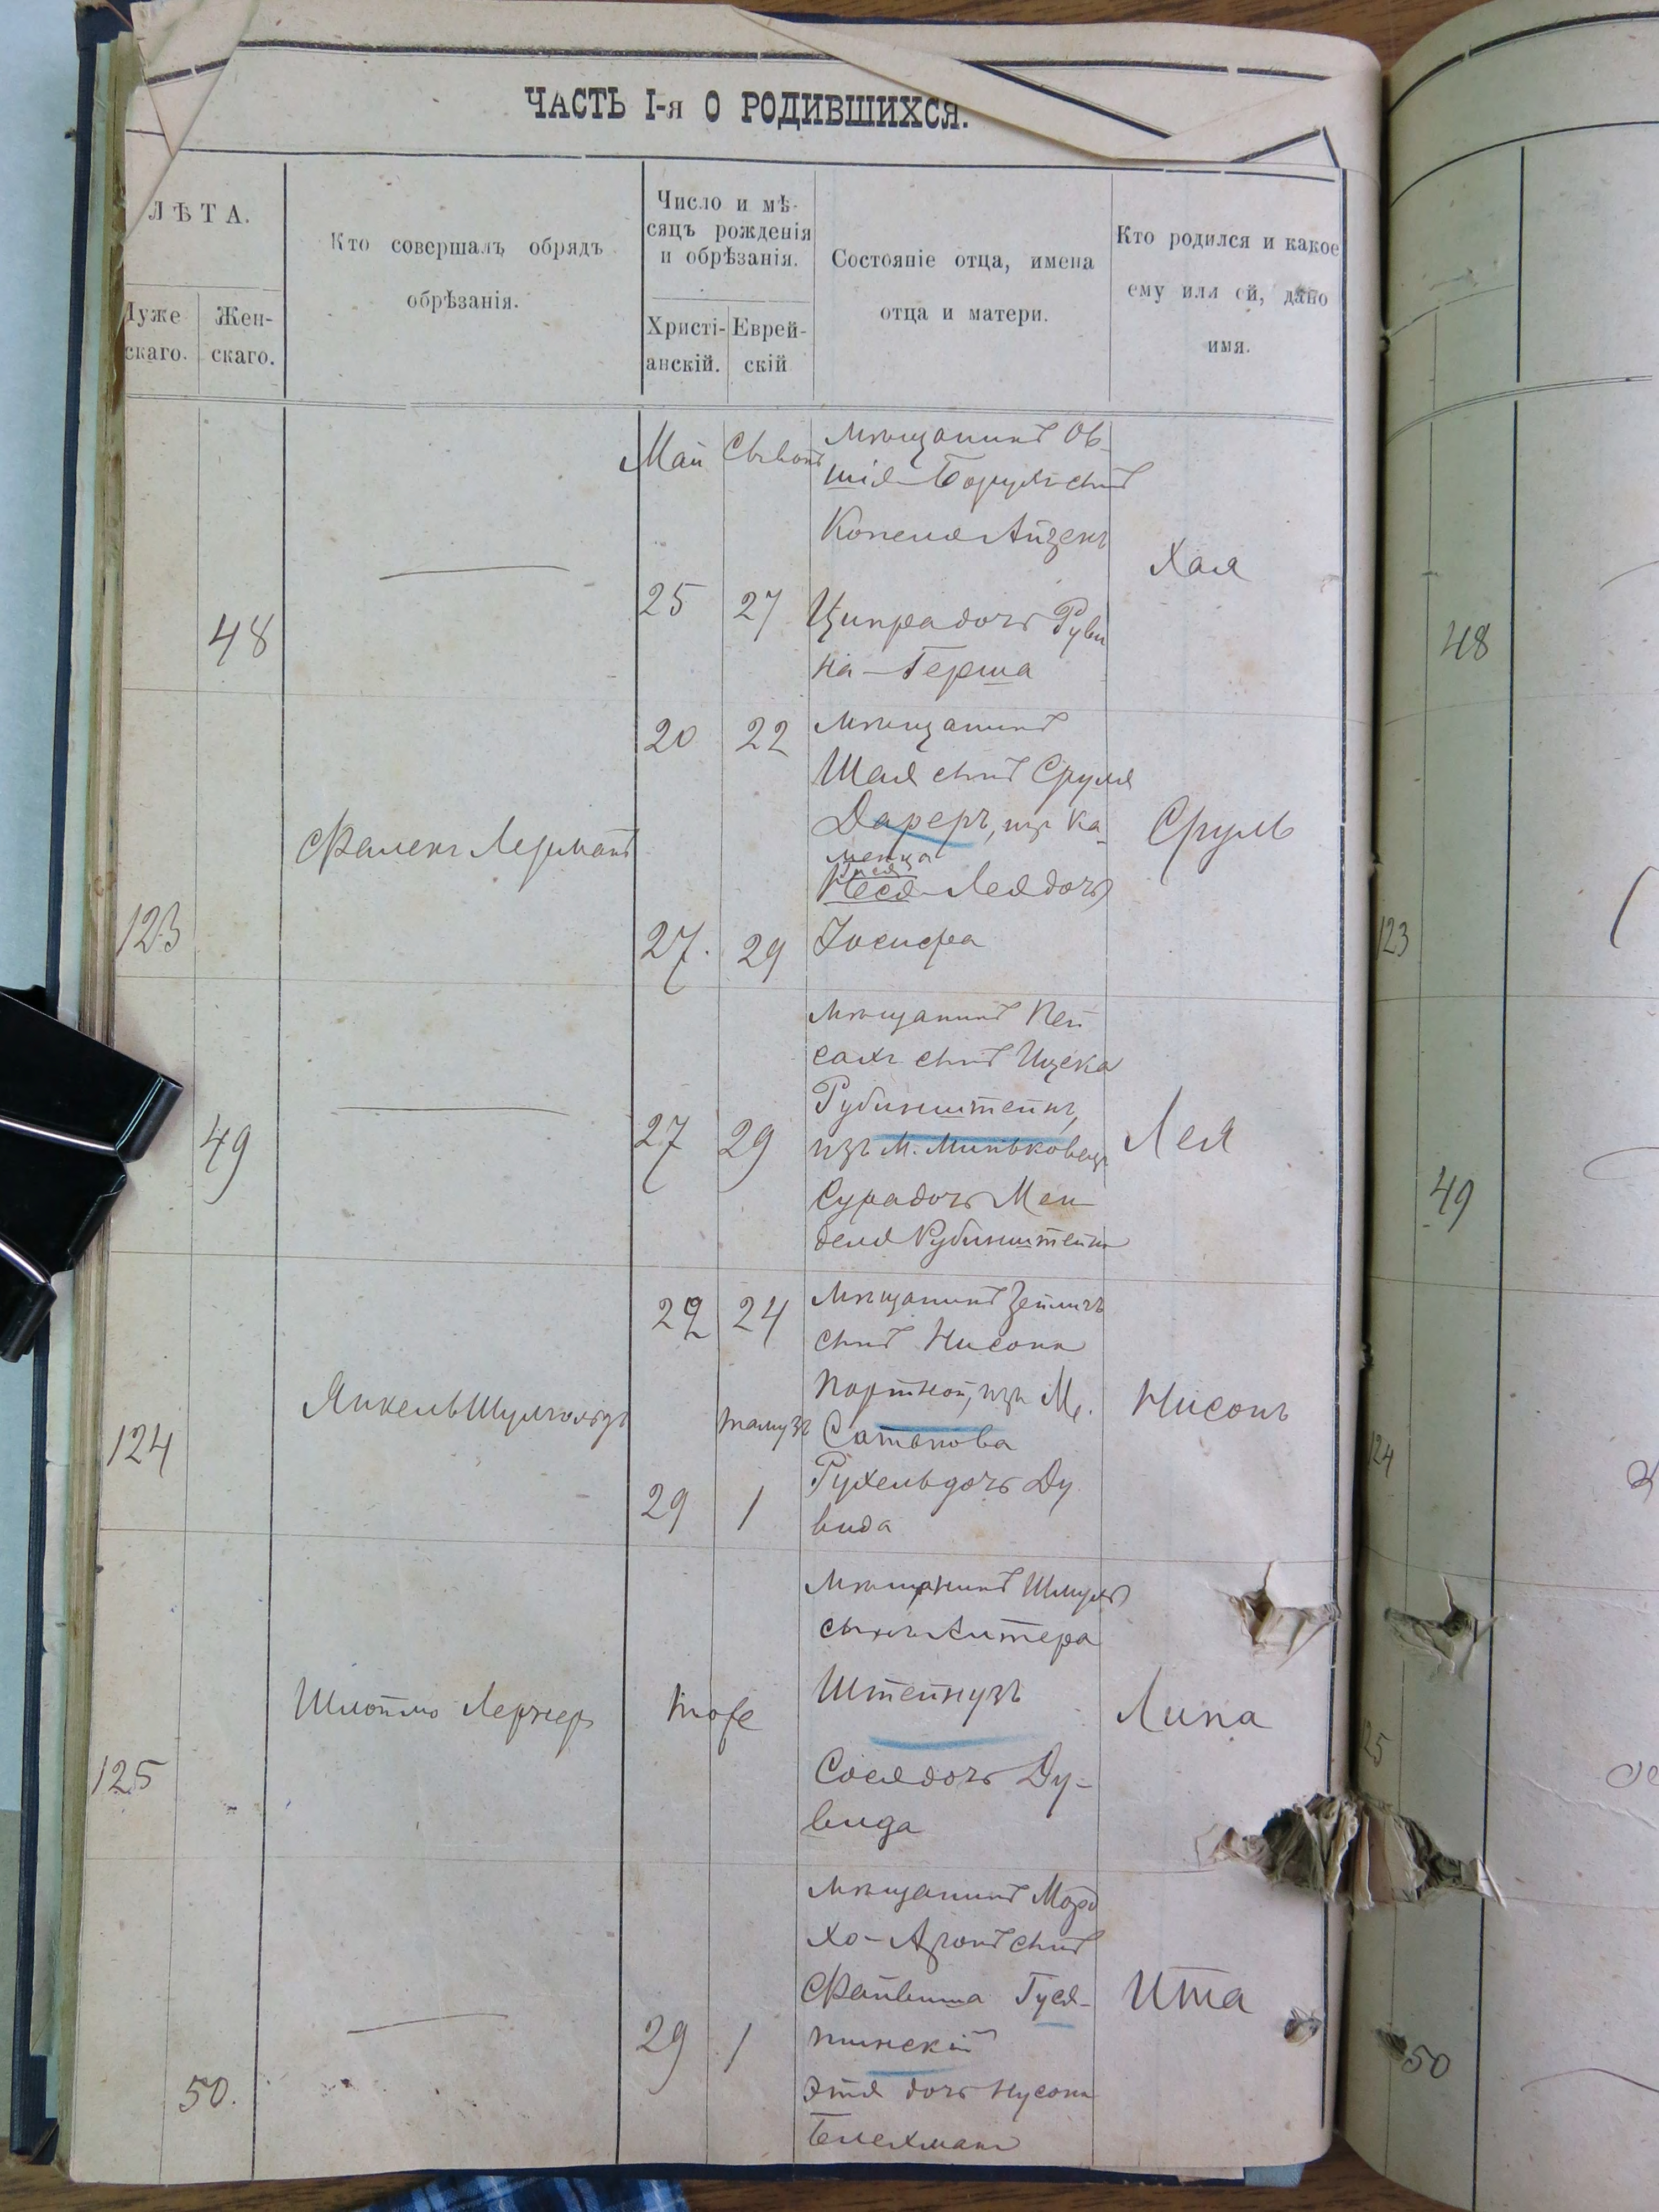 ЧАСТЬ I-я О РОДИВШИХСЯ.
ЛѢТА.
Муже
скаго.
Жен-
скаго.
Кто совершалъ обрядъ
обрѣзанія.
Число и мѣ-
сяцъ рожденія
и обрѣзанія.
Христі-
анскій.
Еврей-
скій
Состояніе отца, имена
отца и матери.
Кто родился и какое
ему или ей, дано
имя.
48
Май
Сивонъ
25
27
Мѣщанинъ Ов
шія-Борухъ сынъ
Копеля Айзенъ
Ципра дочь Руви
на-Герша
Хая
48
123
Фалекъ Лерманъ
20
22
27.
29
Мѣщанинъ
Шая сынъ Сруля
Дареръ, изъ Ка-
менца
Лея дочь
Іосифа
Сруль
123
49
27
29
Мѣщанинъ Пей
сахъ сынъ Ицека
Рубинштейнъ,
изъ М. Миньковецъ
Сура дочь Мен
деля Рубинштейнъ
Лея
49
124
Янкель Шулмольдъ
22
24
тамузъ
29
1
Мѣщанинъ Зейликъ
сынъ Нисона
Портной, изъ М.
Сатанова
Рухель дочь Ду
вида
Нисонъ
124
125
Шлоймо Лернер
тоже
Мѣщанинъ Шмуль
сынъ Алтера
Штейнузъ
Сося дочь Ду-
вида
Липа
25
50.
29
1
Мѣщанинъ Морд
хо-Аронъ сынъ
Файвиша Гуся-
тинскій
Этя дочь Нусона
Белехманъ
Ита
50